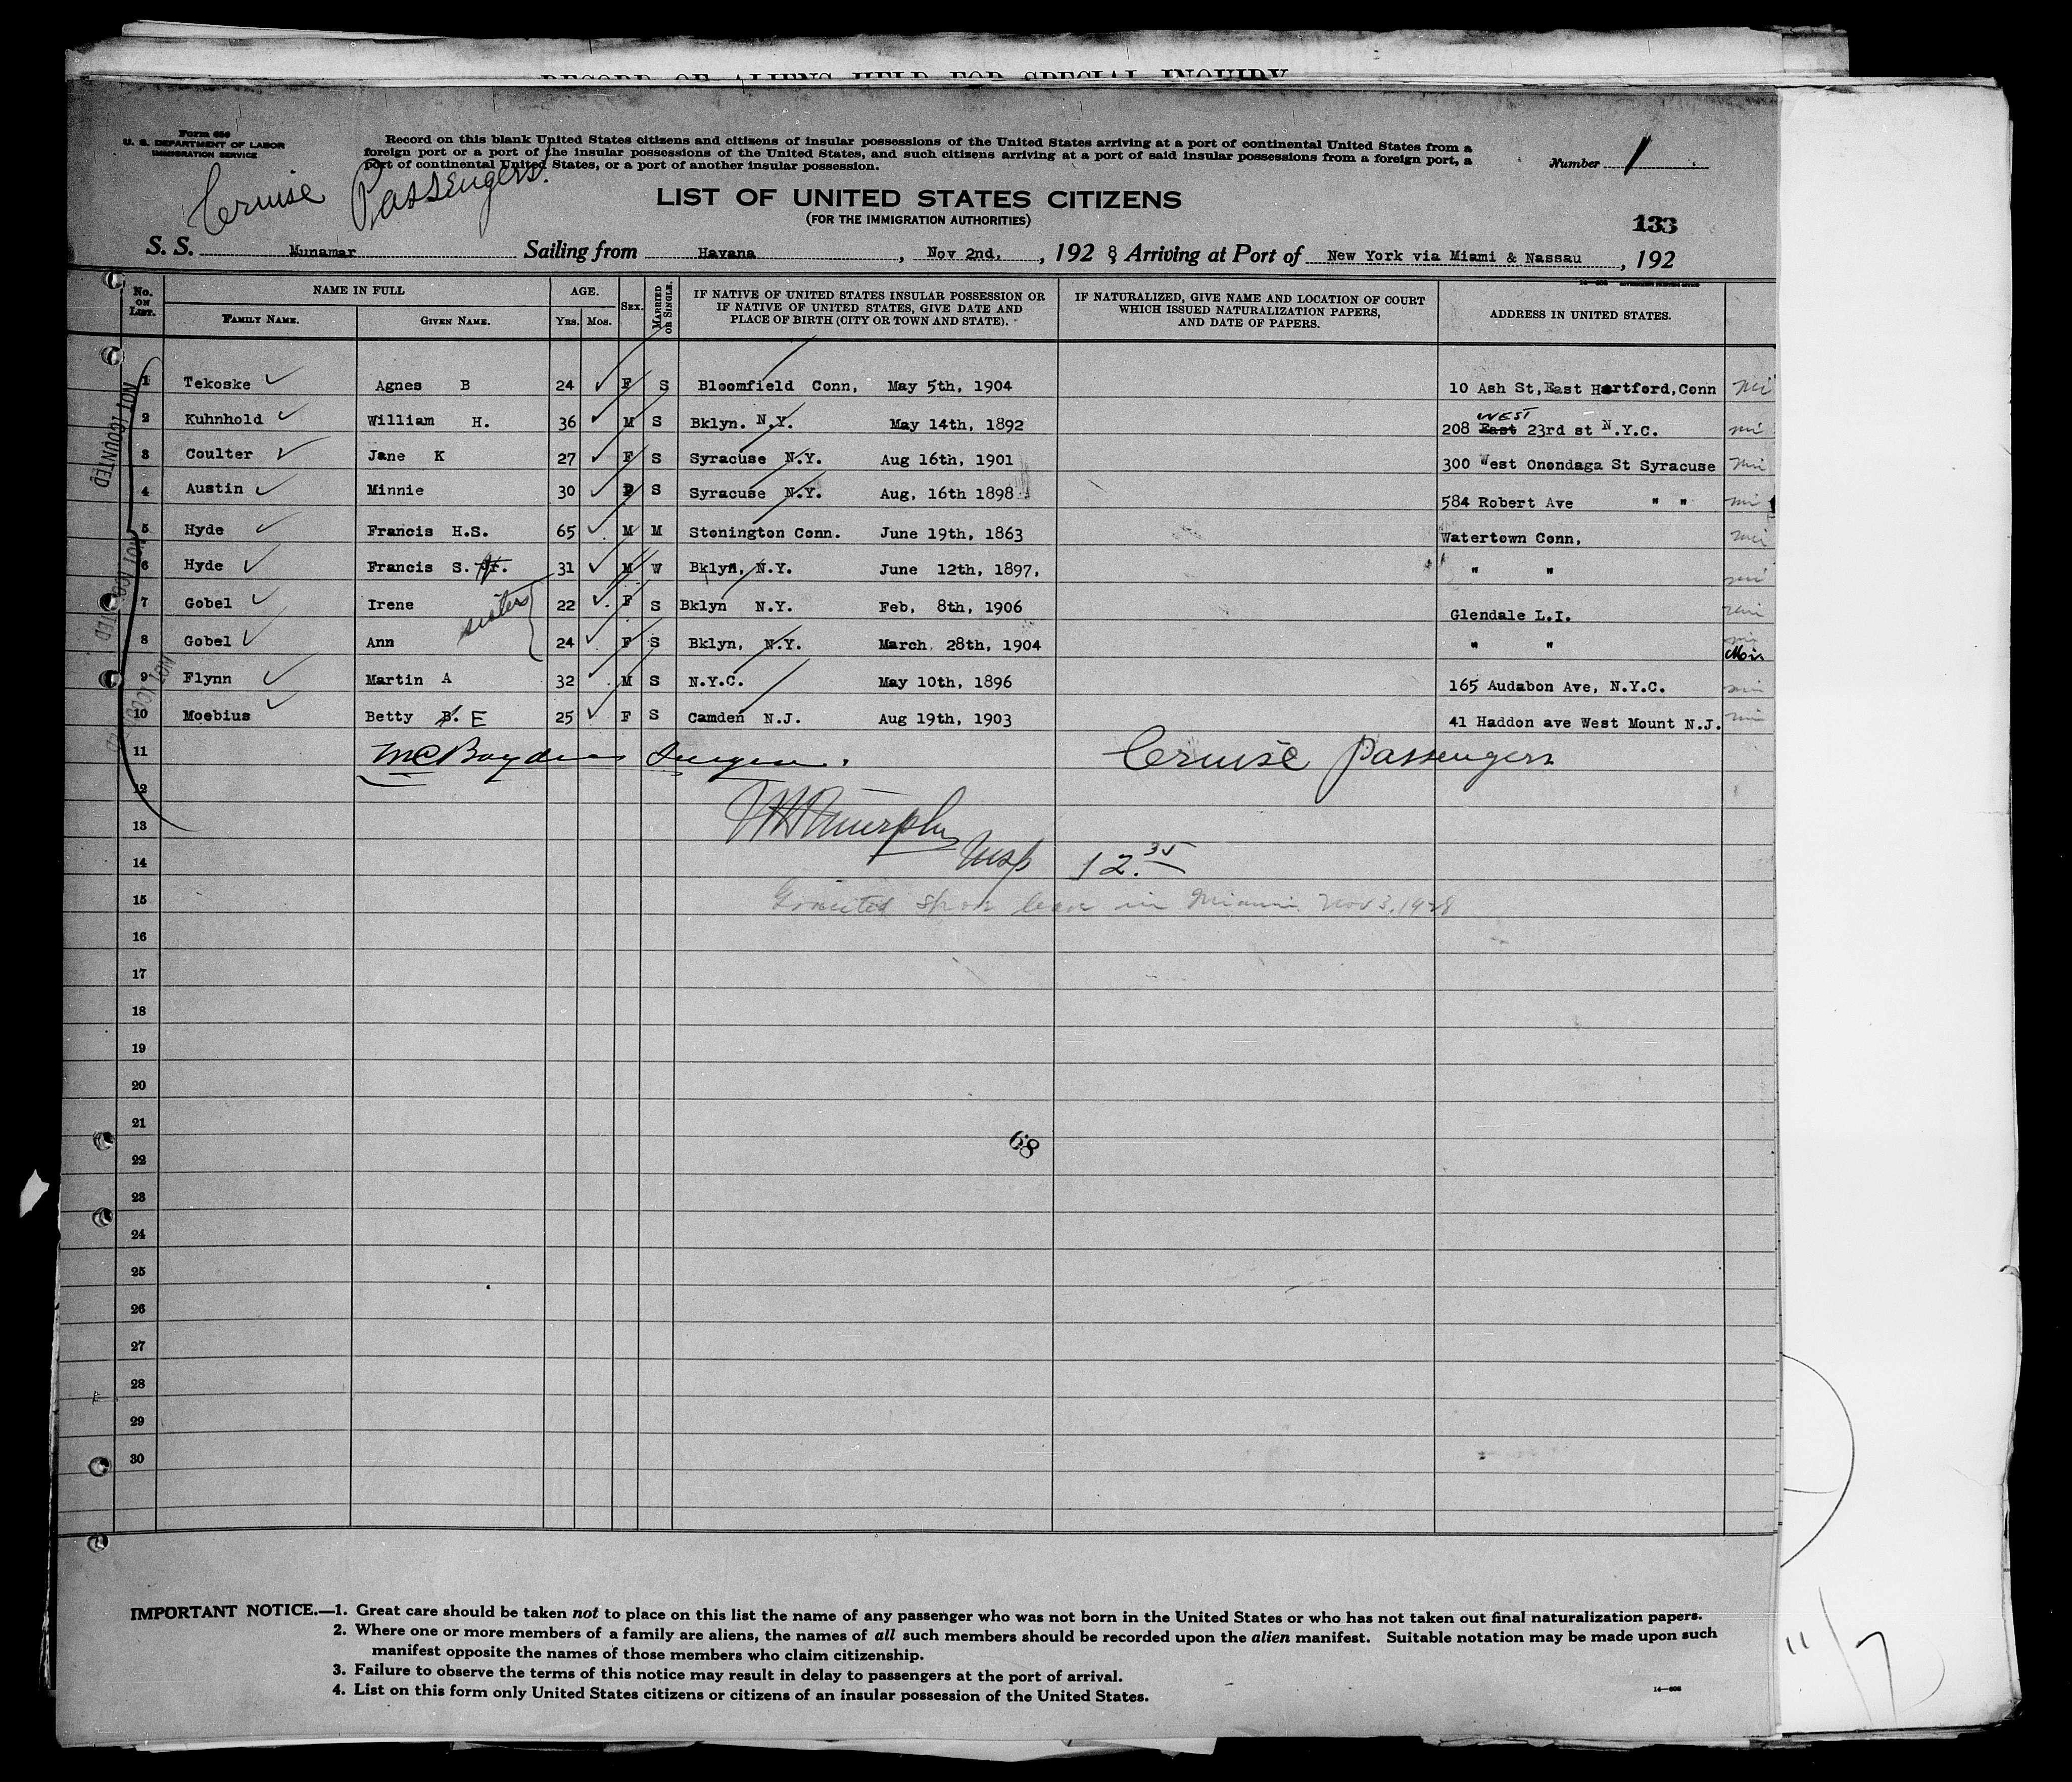 RECORD OF ALIENS HELD FOR SPECIAL INQUIRY
Form 630
U. S. DEPARTMENT OF LABOR
IMMIGRATION SERVICE
Record on this blank United States citizens and citizens of insular possessions of the United States arriving at a port of continental United States from a
foreign port or a port of the insular possessions of the United States, and such citizens arriving at a port of said insular possessions from a foreign port, a
port of continental United States, or a port of another insular possession.
Number 1
Cruise Passengers.
LIST OF UNITED STATES CITIZENS
(FOR THE IMMIGRATION AUTHORITIES)
133
S. S. Munamar Sailing from Havana, Nov 2nd., 1928 Arriving at Port of New York via Miami & Nassau, 192
No. ON LIST. NAME IN FULL AGE. SEX. MARRIED OR SINGLE. IF NATIVE OF UNITED STATES INSULAR POSSESSION OR IF NATIVE OF UNITED STATES, GIVE DATE AND PLACE OF BIRTH (CITY OR TOWN AND STATE). IF NATURALIZED, GIVE NAME AND LOCATION OF COURT WHICH ISSUED NATURALIZATION PAPERS, AND DATE OF PAPERS. ADDRESS IN UNITED STATES.
FAMILY NAME. GIVEN NAME. YRS. MOS.
NOT COUNTED
NOT COUNTED
NOT COUNTED
1 Tekoske Agnes B 24 F S Bloomfield Conn, May 5th, 1904 10 Ash St, East Hartford, Conn
2 Kuhnhold William H. 36 M S Bklyn. N.Y. May 14th, 1892 208 East WEST 23rd st N.Y.C.
3 Coulter Jane K 27 F S Syracuse N.Y. Aug 16th, 1901 300 West Onondaga St Syracuse
4 Austin Minnie 30 F S Syracuse N.Y. Aug, 16th 1898 584 Robert Ave " "
5 Hyde Francis H.S. 65 M M Stonington Conn. June 19th, 1863 Watertown Conn,
6 Hyde Francis S. Jr. 31 M W Bklyn, N.Y. June 12th, 1897, " "
7 Gobel Irene sisters 22 F S Bklyn N.Y. Feb, 8th, 1906 Glendale L.I.
8 Gobel Ann 24 F S Bklyn, N.Y. March 28th, 1904 " "
9 Flynn Martin A 32 M S N.Y.C. May 10th, 1896 165 Audabon Ave, N.Y.C.
10 Moebius Betty B. E 25 F S Camden N.J. Aug 19th, 1903 41 Haddon ave West Mount N.J.
11 Surgeon. Cruise Passengers
12
13 Murphy
14 Insp 12.35
15 Granted shore leave in Miami Nov 3, 1928
16
17
18
19
20
21
68
22
23
24
25
26
27
28
29
30
IMPORTANT NOTICE.—1. Great care should be taken not to place on this list the name of any passenger who was not born in the United States or who has not taken out final naturalization papers.
2. Where one or more members of a family are aliens, the names of all such members should be recorded upon the alien manifest. Suitable notation may be made upon such
manifest opposite the names of those members who claim citizenship.
3. Failure to observe the terms of this notice may result in delay to passengers at the port of arrival.
4. List on this form only United States citizens or citizens of an insular possession of the United States.
14—608
11/7